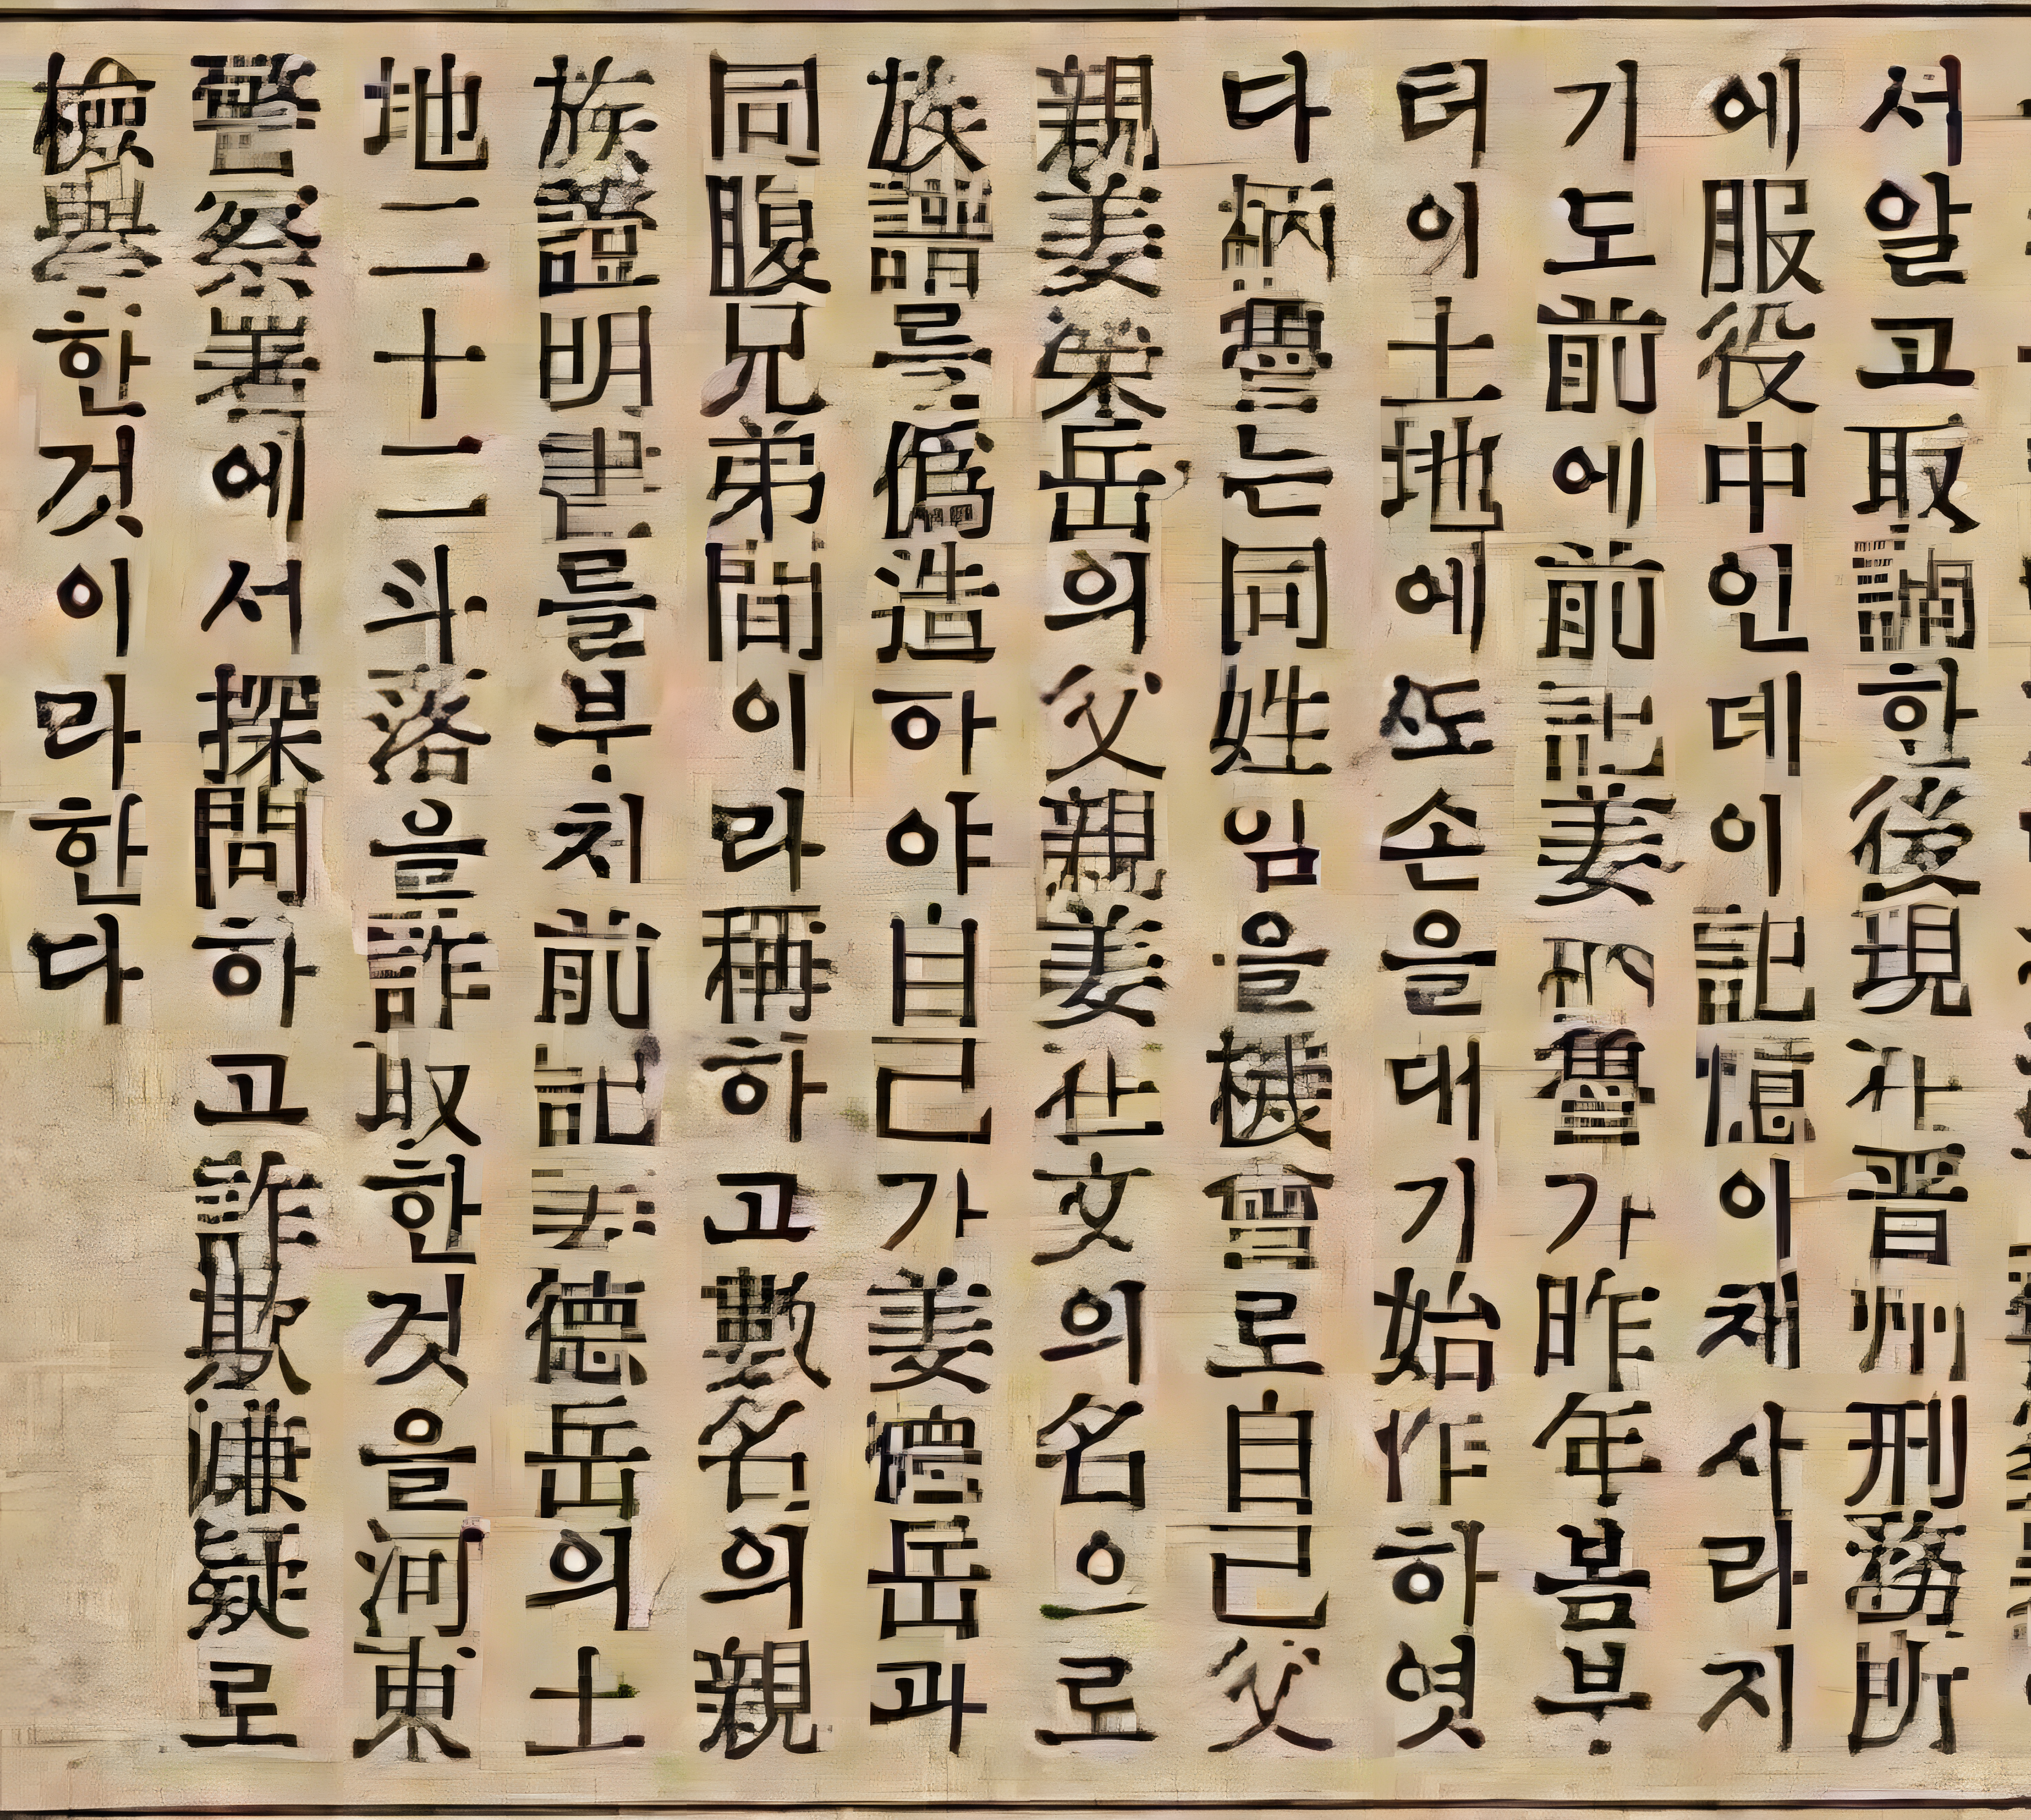 서알고取調한後現在晋州刑務所
에服役中인데이記憶이채사라지
기도前에前記姜 가昨年봄부
터이土地에또손을대기始作하엿
다 는同姓임을機會로自己父
親姜 岳의父親姜 文의名으로
族譜를僞造하야自己가姜德岳과
同腹兄弟間이라稱하고數名의親
族證明書를부치前記姜德岳의土
地二十二斗落을詐取한것을河東
警察署에서探問하고詐欺嫌疑로
檢擧한것이라한다